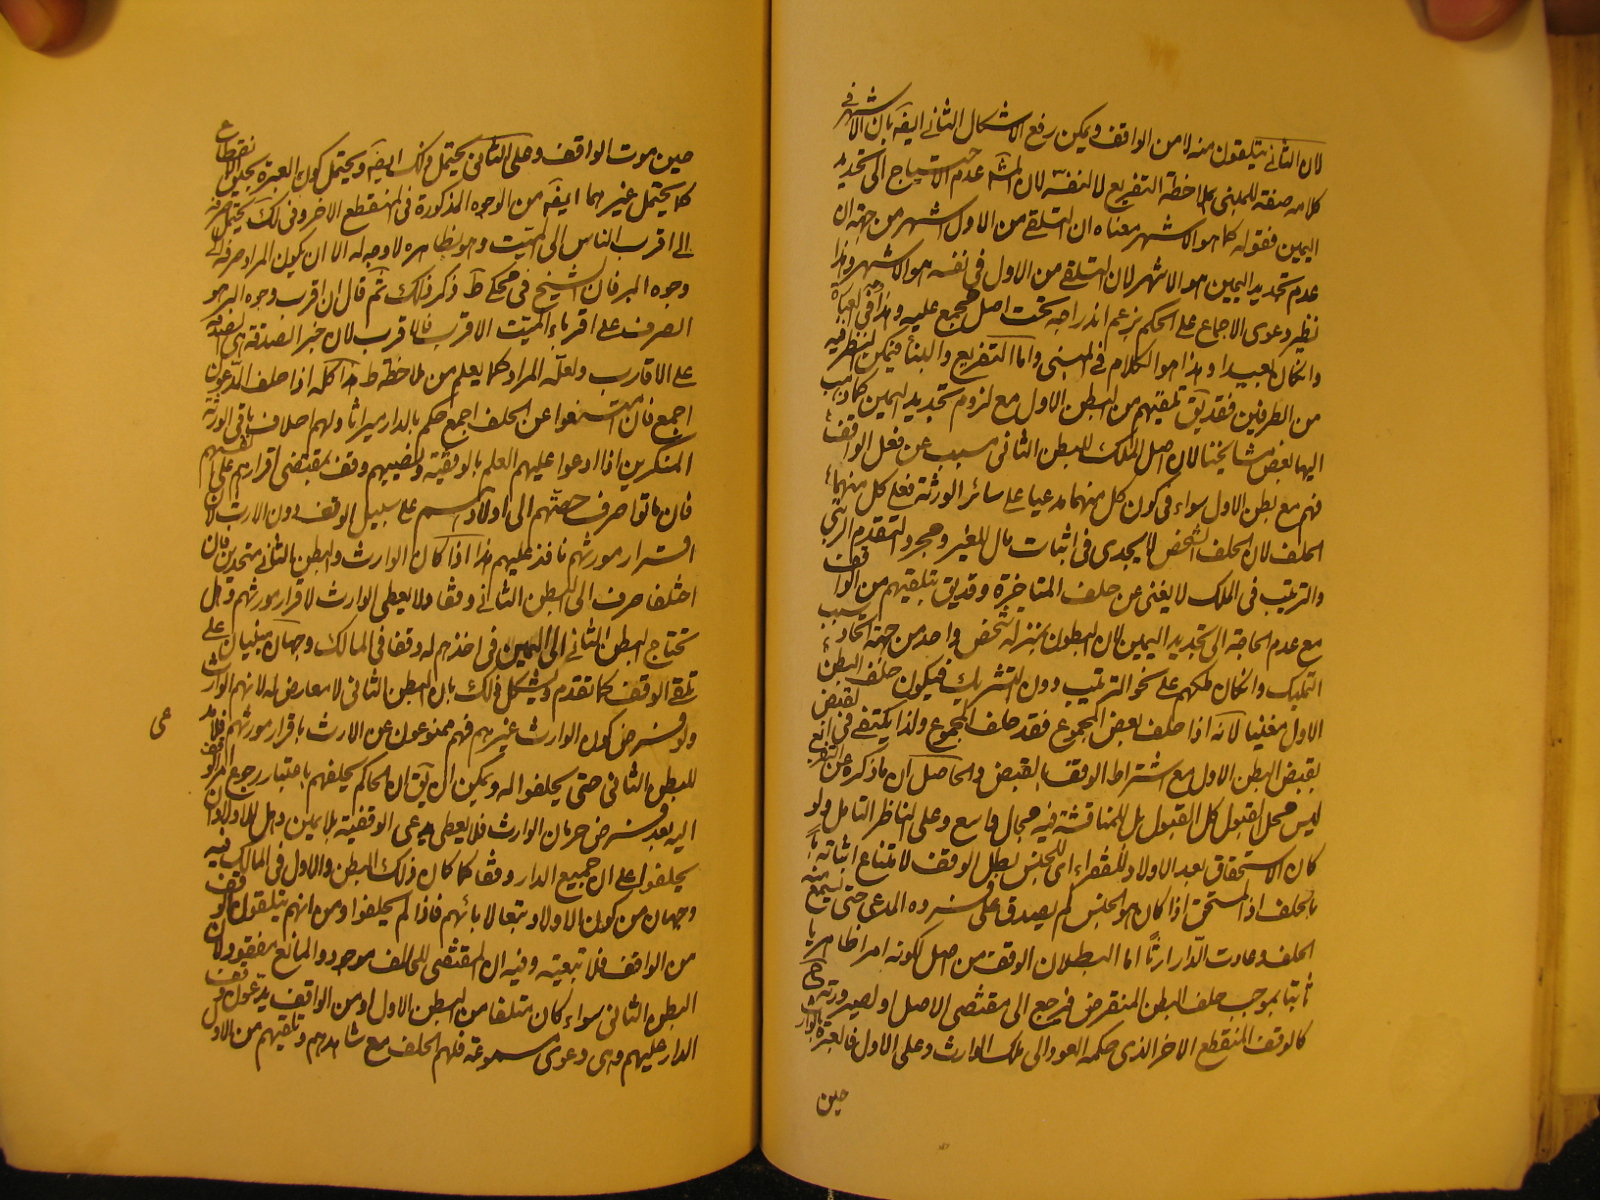 لان الثاني يتلقون منه لا من الواقف ويمكن رفع الاشكال الثاني ايضا بان الاشهر في
كلامه صفة للمبنى بملاحظة التفريع لا لنفسه لان عدم الاحتياج الى تجديد
اليمين فقوله كما هو الاشهر معناه ان التلقي من الاول اشهر من جهة ان
عدم تجديد اليمين هو الاشهر لان التلقي من الاول في نفسه هو الاشهر وهذا
نظير دعوى الاجماع على الحكم بزعم اندراجه تحت اصل مجمع عليه وهذا في العبارة
وان كان بعيدا وهذا هو الكلام في المبنى واما التفريع والبناء فيمكن النظر فيه
من الطرفين فقد يق تلقيهم من البطن الاول مع لزوم تجديد اليمين كما ذهب
اليها بعض مشايخنا لان اصل الملك للبطن الثاني مسبب عن فعل الواقف
فهم مع بطن الاول سواء في كون كل منهما مدعيا على سائر الورثة فعلى كل منهما
الحلف لان الحلف الشخص لا يجدى في اثبات مال للغير ومجرد التقدم الرتبي
والترتيب في الملك لا يغنى عن حلف المتاخرة وقد يق بتلقيهم من الواقف
مع عدم الحاجة الى تجديد اليمين لان البطون بمنزلة شخص واحد من جهة اتحاد سبب
التمليك وان كان ملكهم على نحو الترتيب دون التشريك فيكون حلف البطن
الاول مغنيا لانه اذا حلف بعض المجموع فقد حلف المجموع ولذا يكتفى في القبض
بقبض البطن الاول مع اشتراط الوقف بالقبض والحاصل ان ما ذكره عن
ليس محل القبول كل القبول بل للمناقشة فيه مجال واسع وعلى الناظر التامل ولو
كان الاستحقاق بعد الاولاد للفقراء اى للجنس بطل الوقف لامتناع اثباته
بالحلف اذ المستحق اذا كان هو الجنس لم يصدق على فرده المدعى حتى يسمع منه
الحلف وعادت الدار ارثا اما البطلان الوقف من اصل لكونه امرا ظاهريا
ثابتا بموجب حلف البطن المنقرض فيرجع الى مقتضى الاصل او لصيرورته
كالوقف المنقطع الاخر الذى حكمه العود الى ملك الوارث وعلى الاول فالعبرة بالوارث
حين
حين موت الواقف وعلى الثاني يحتمل ذلك ايضا ويحتمل كون العبرة بحين الانقطاع
كما يحتمل غيرهما ايضا من الوجوه المذكورة في المنقطع الاخر وفى لك يحتمل صرفه
الى اقرب الناس الى الميت وهو بظاهره لا وجه له الا ان يكون المراد صرفه الى
وجوه البر فان الشيخ في محكى ط ذكر ذلك ثم قال ان اقرب وجوه البر هو
الصرف على اقرباء الميت الاقرب فالاقرب لان خير الصدقة هى الصدقة
على الاقارب ولعله المراد كما يعلم من ملاحظة ط هذا كله اذا حلف المدعون
اجمع فان امتنعوا عن الحلف اجمع حكم بالدار ميراثا ولهم احلاف باقى الورثة
المنكرين اذا ادعوا عليهم العلم بالوقفية ونصيبهم وقف بمقتضى اقرارهم على انفسهم
فان ماتوا صرف حصتهم الى اولادهم على سبيل الوقف دون الارث لان
اقرار مورثهم نافذ عليهم هذا اذا كان الوارث والبطن الثاني متحدين فان
اختلفا صرف الى البطن الثاني وقفا ولا يعطى الوارث لاقرار مورثهم وهل
تحتاج البطن الثاني الى اليمين في اخذهم له وقفا في المالك وجهان مبنيان على
تلقى الوقف كما تقدم ويشكل ذلك بان البطن الثاني لا معارض له لانهم الوارث
ولو فرض كون الوارث غيرهم فهم ممنوعون عن الارث باقرار مورثهم فلا
للبطن الثاني حتى يحلفوا له ويمكن ان يق ان الحاكم يحلفهم باعتبار رجوع امر الوقف
اليه بعد فرض حرمان الوارث فلا يعطى مدعى الوقفية بلا يمين وهل للاولاد ان
يحلفوا على ان جميع الدار وقفا كما كان ذلك البطن والاول في المالك فيه
وجهان من كون الاولاد تبعا لابائهم فاذا لم يحلفوا ومن انهم يتلقون الوقف
من الواقف فلا تبعية وفيه ان المقتضى للحلف موجود والمانع مفقود لان
البطن الثاني سواء كان متلقا من البطن الاول او من الواقف يدعون وقف
الدار عليهم وهى دعوى مسموعة فلهم الحلف مع شاهدهم وتلقيهم من الاول